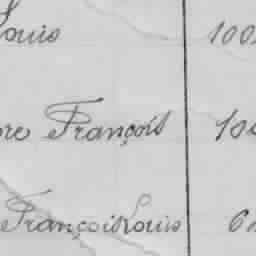 Louis 100
re François 10
François Louis 6